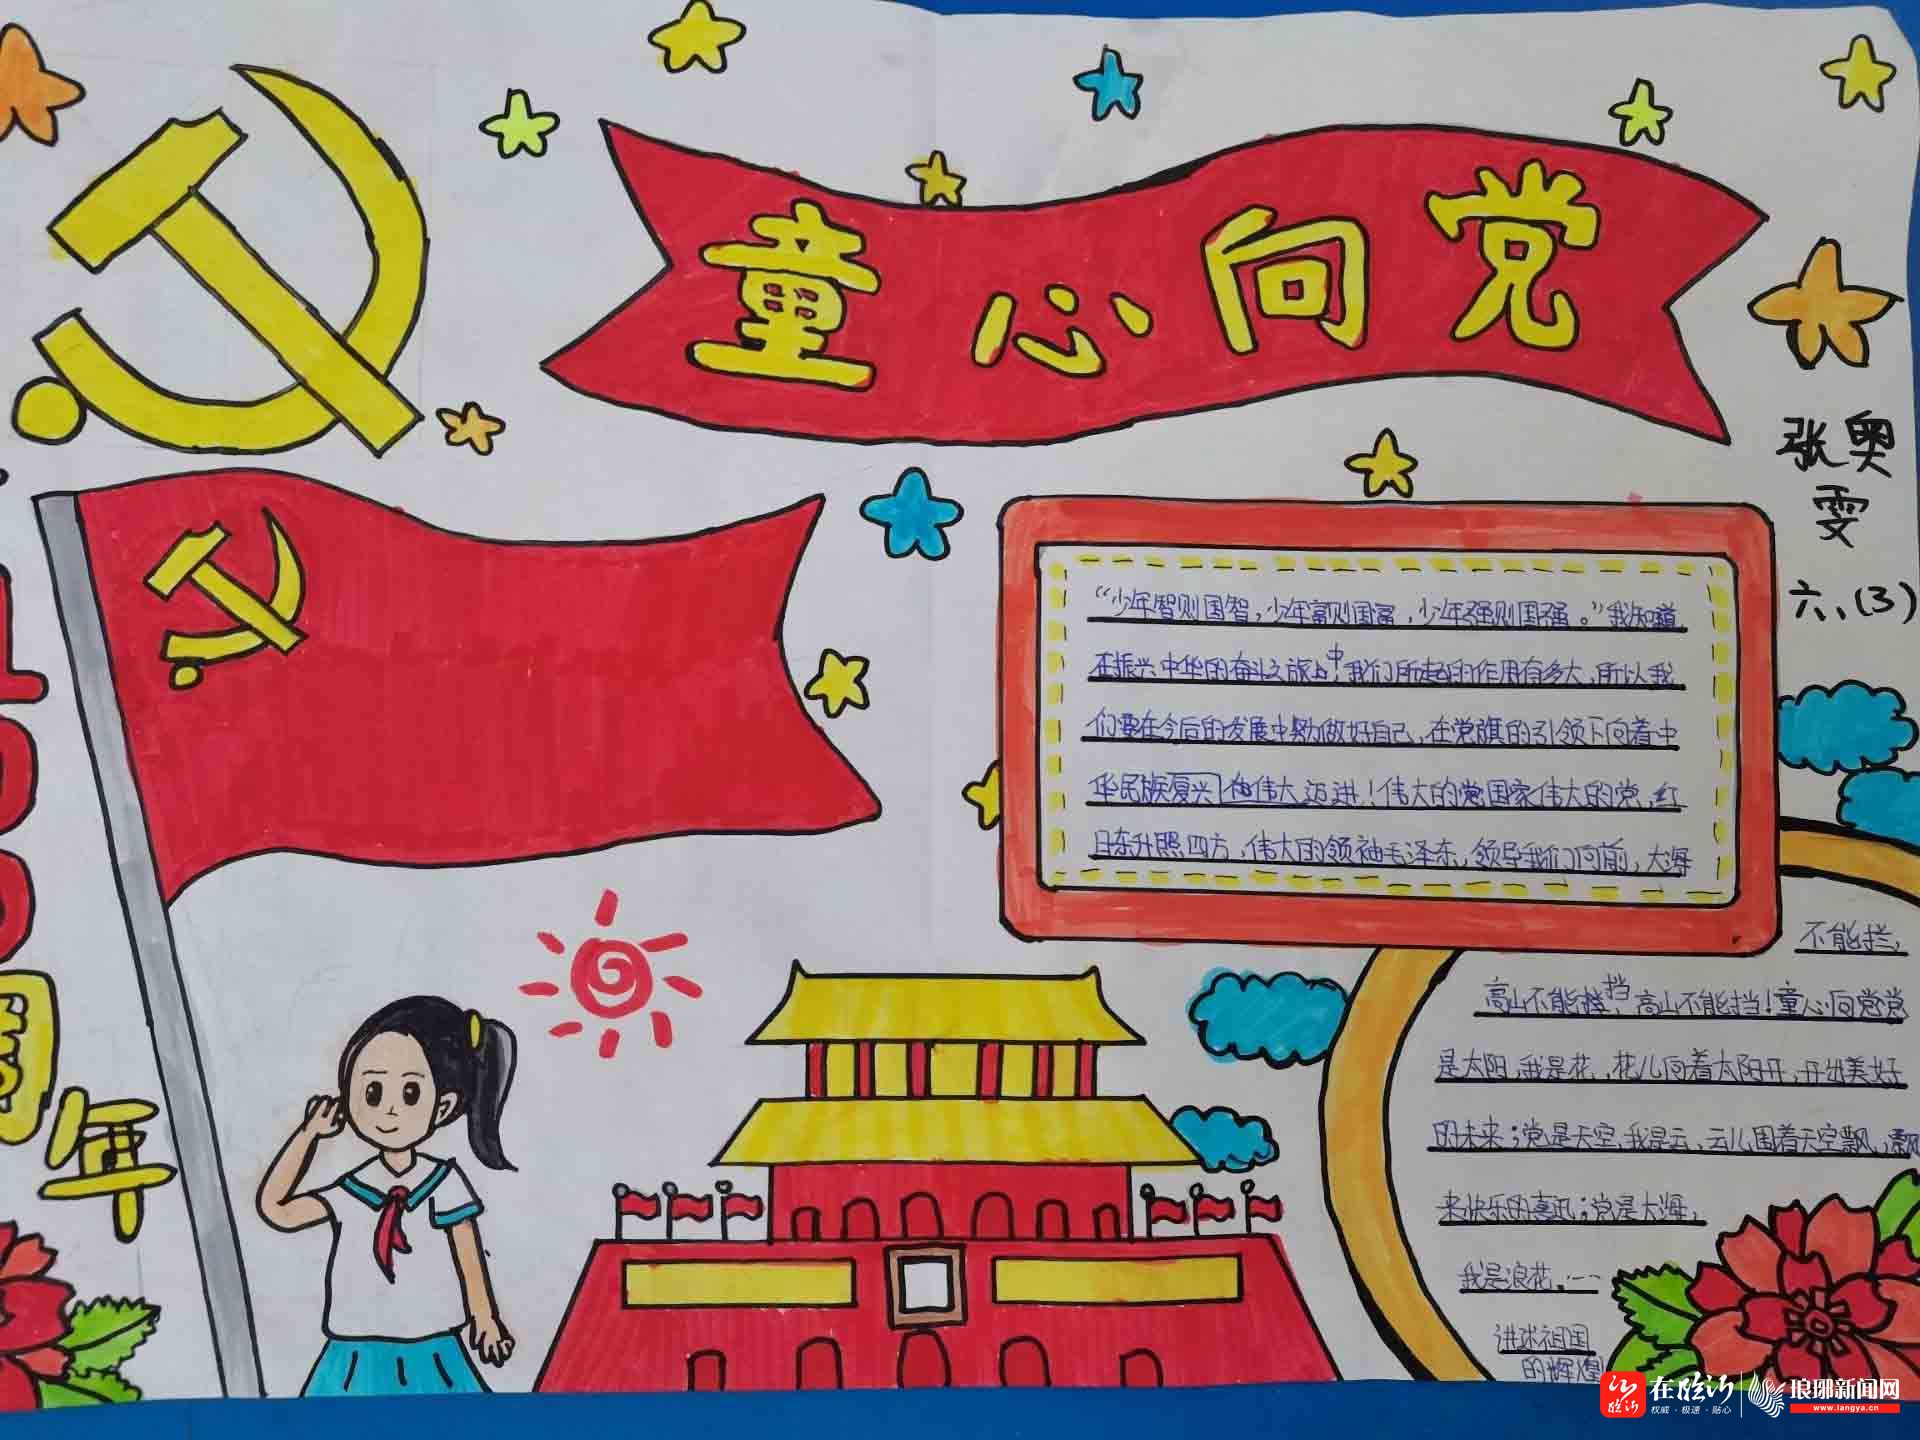 童心向党
张奥
雯
六、(3)
100
周
年
“少年智则国智，少年富则国富，少年强则国强。”我知道
在振兴中华的奋斗之旅中我们所起的作用有多大，所以我
们要在今后的发展中努力做好自己，在党旗的引领下向着中
华民族复兴 伟大迈进！伟大的党国家伟大的党，红
日东升照四方，伟大的领袖毛泽东，领导我们向前，大海
不能拦，
高山不能挡，高山不能挡！童心向党党
是太阳，我是花，花儿向着太阳开，开出美好
的未来；党是天空，我是云，云儿围着天空飘，飘
来快乐的喜讯；党是大海，
我是浪花。……
讲述祖国
的辉煌
在临沂
权威·极速·贴心
琅琊新闻网
www.langya.cn